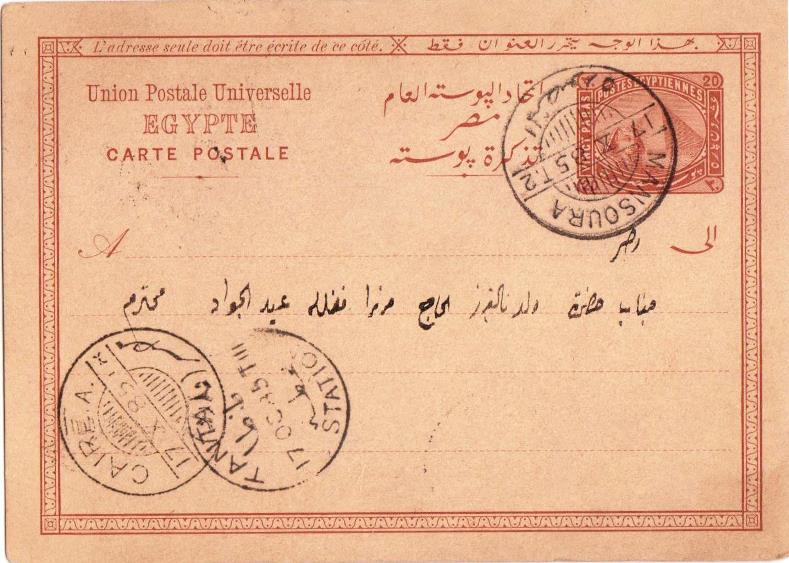 L'adresse seule doit être écrite de ce côté. بهذا الوجه يتحرر العنوان فقط
Union Postale Universelle
EGYPTE
CARTE POSTALE
اتحاد البوسته العام
مصر
تذكرة بوسته
20
POSTES EGYPTIENNES
VINGT PARAS
MANSOURA
17 X 85 T.2
A
الى
مصر
جناب حضرة الحاج ميرزا فضلله عبد الجواد محترم
CAIRE A.
17 X 85
TANTA
STATION
17 OC 85 T III
طنطا